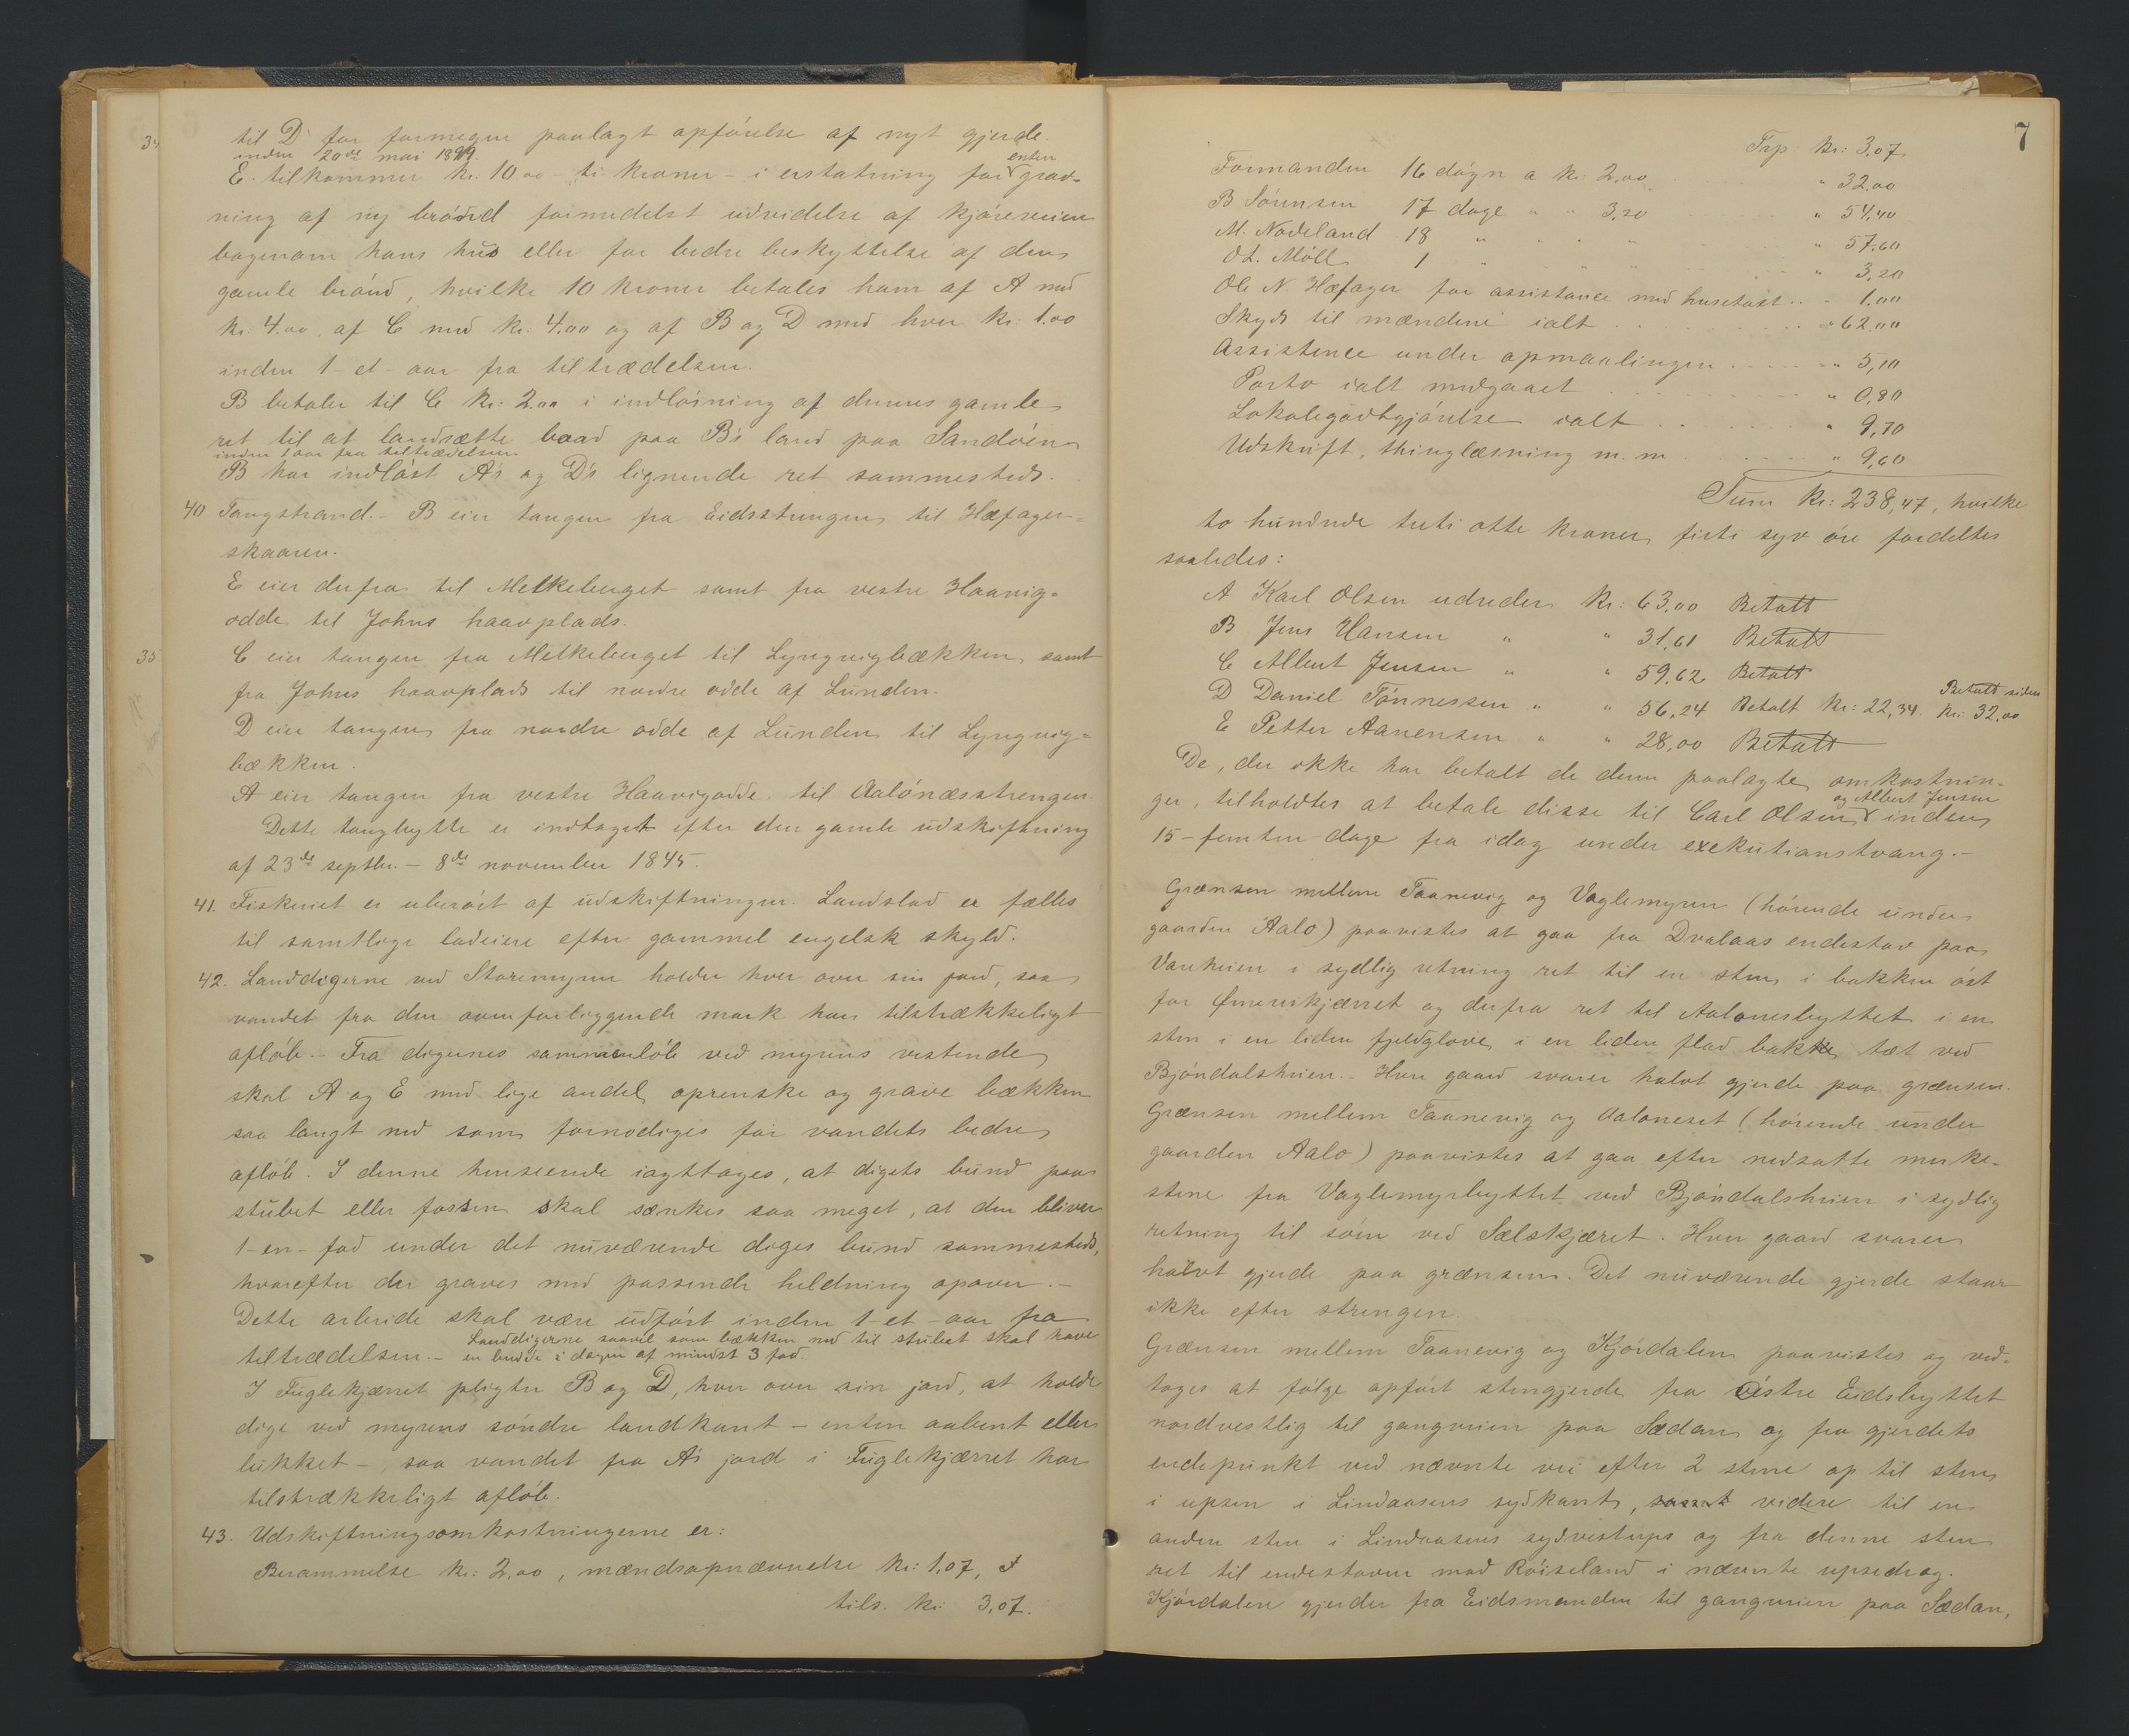 til D for formegen paalagt opførelse af nyt gjerde
inden 20de mai 1899.
E. tilkommer kr: 10.00 - ti kroner - i erstatning for enten grav-
ning af ny brønd formedelst udvidelse af kjøreveien
bagenom hans hus eller for bedre beskyttelse af den
gamle brønd, hvilke 10 kroner betales ham af A med
kr. 4.00, af C med kr. 4.00 og af B og D med hver kr: 1.00
inden 1 - et - aar fra tiltrædelsen.
B betaler til C kr: 2.00 i indløsning af dennes gamle
ret til at landsætte baad paa B's land paa Sandøen
inden 1 aar fra tiltrædelsen.
B har indløst A's og D's lignende ret sammesteds.
40 Tangstrand. - B eier tangen fra Eidsstrengen til Hæfager-
skaaren.
E eier derfra til Melkeberget samt fra vestre Haavig-
odde til Johns haavplads.
35
C eier tangen fra Melkeberget til Lyngvigbækken samt
fra Johns haavplads til nordre odde af Lunden.
D eier tangen fra nordre odde af Lunden til Lyngvig-
bækken.
A eier tangen fra vestre Haavigodde til Aalönæsstrengen.
Dette tangbytte er indtaget efter den gamle udskiftning
af 23de septbr. - 8de november 1845.
41. Fiskeriet er uberørt af udskiftningen. Landslod er fælles
til samtlige lodeiere efter gammel engelsk skyld.
42. Landdigerne ved Storemyren holder hver over sin jord, saa
vandet fra den ovenforliggende mark har tilstrækkeligt
afløb. - Fra digernes sammenløb ved myrens vestende
skal A og E med lige andel oprenske og grave bækken
saa langt ned som fornødiges for vandets bedre
afløb. I denne henseende iagttages, at digets bund paa
stubet eller fossen skal sænkes saa meget, at den bliver
1 - en - fod under det nuværende diges bund sammesteds,
hvorefter der graves med passende heldning opover. -
Dette arbeide skal være udført inden 1 - et - aar fra
tiltrædelsen. - Landdigerne saavel som bækken ned til stubet skal have
en bredde i dagen af mindst 3 fod.
I Fuglekjærret pligter B og D, hver over sin jord, at holde
dige ved myrens søndre landkant - enten aabent eller
lukket -, saa vandet fra A's jord i Fuglekjærret har
tilstrækkeligt afløb.
43. Udskiftningsomkostningerne er:
Berammelse kr: 2,00, mændsopnævnelse kr: 1,07,
tils. kr: 3,07.
7
Trp. kr: 3,07
Formanden 16 døgn a kr: 2,00 " 32,00
B Sørensen 17 dage " " 3,20 " 54,40
M. Nodeland 18 " " " " 57,60
Ol. Möll 1 " " " " 3,20
Ole N Hæfager for assistance med husetakst .. - 1,00
Skyds til mændene ialt " 62,00
Assistence under opmaalingen " 5,10
Porto ialt medgaaet " 0,80
Lokalegodtgjørelse ialt " 9,70
Udskrift, thinglæsning m. m " 9,60
Sum kr: 238,47, hvilke
to hundrede treti otte kroner firti syv øre fordeltes
saaledes:
A Karl Olsen udreder kr: 63,00 Betalt
B Jens Hansen " " 31,61 Betalt
C Albert Jensen " " 59,62 Betalt
D Daniel Tönnessen " " 56,24 Betalt kr: 22,34. Betalt siden kr: 32,00
E Petter Aanensen " " 28,00 Betalt
De, der ikke har betalt de dem paalagte omkostnin-
ger, tilholdtes at betale disse til Carl Olsen og Albert Jensen inden
15 - femten - dage fra idag under exekutionstvang. -
Grænsen mellem Taanevig og Vaglemyren (hørende under
gaarden Aalo) paavistes at gaa fra Dvalaas endestav paa
Varheien i sydlig retning ret til en sten i bakken øst
for Ømerskjærret og derfra ret til Aalonesbyttet i en
sten i en liden fjeldglove i en liden flad bakke tæt ved
Bjöndalsheien. - Hver gaard svarer halvt gjerde paa grænsen.
Grænsen mellem Taanevig og Aaloneset (hørende under
gaarden Aalo) paavistes at gaa efter nedsatte merke-
stene fra Vaglemyrbyttet ved Bjöndalsheien i sydlig
retning til søen ved Sælskjæret. Hver gaard svarer
halvt gjerde paa grænsen. Det nuværende gjerde staar
ikke efter strengen.
Grænsen mellem Taanevig og Kjördalen paavistes og ved-
toges at følge opført stengjerde fra østre Eidsbyttet
nordvestlig til gangveien paa Sædan og fra gjerdets
endepunkt ved nævnte vei efter 2 stene op til sten
i upsen i Lindaasens sydkant, samt videre til en
anden sten i Lindaasens sydvestups og fra denne sten
ret til endestaven mod Röiseland i nævnte upsedrag.
Kjördalen gjerder fra Eidsmanden til gangveien paa Sædan,